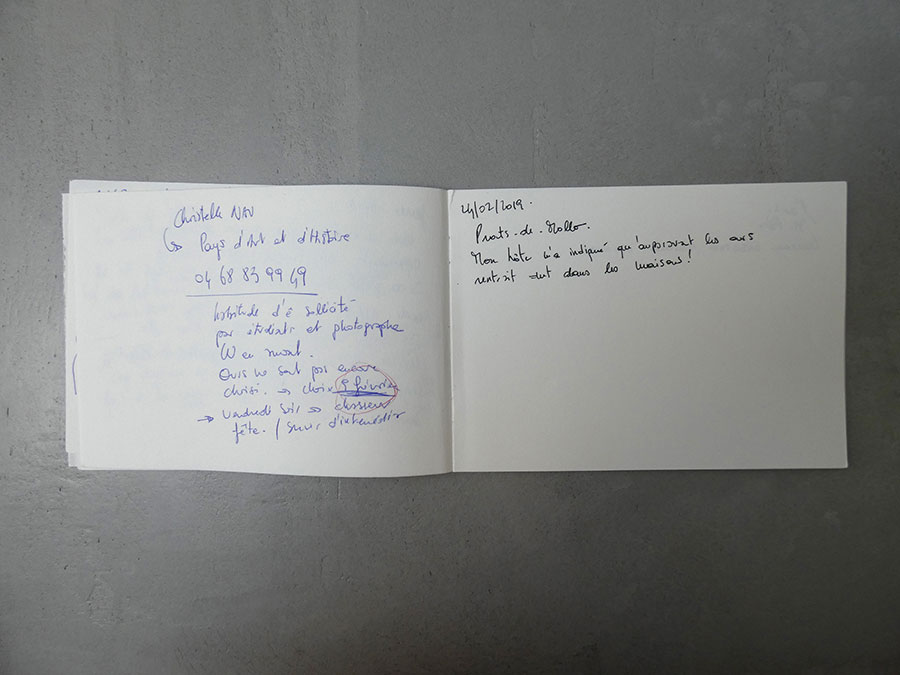 Christelle NAU
↳ Pays d'Art et d'Histoire
04 68 83 99 49
habitude d'ê sollicité
par étudiants et photographe
W en amont.
Ours ne sont pas encore
choisi. → choix 9 février
→ vendredi soir → chasseur
fête. / Servir d'intermédiair
24/02/2019.
Prats-de-Mollo.
Mon hôte m'a indiqué qu'auparavant les ours
rentrait dans les maisons!